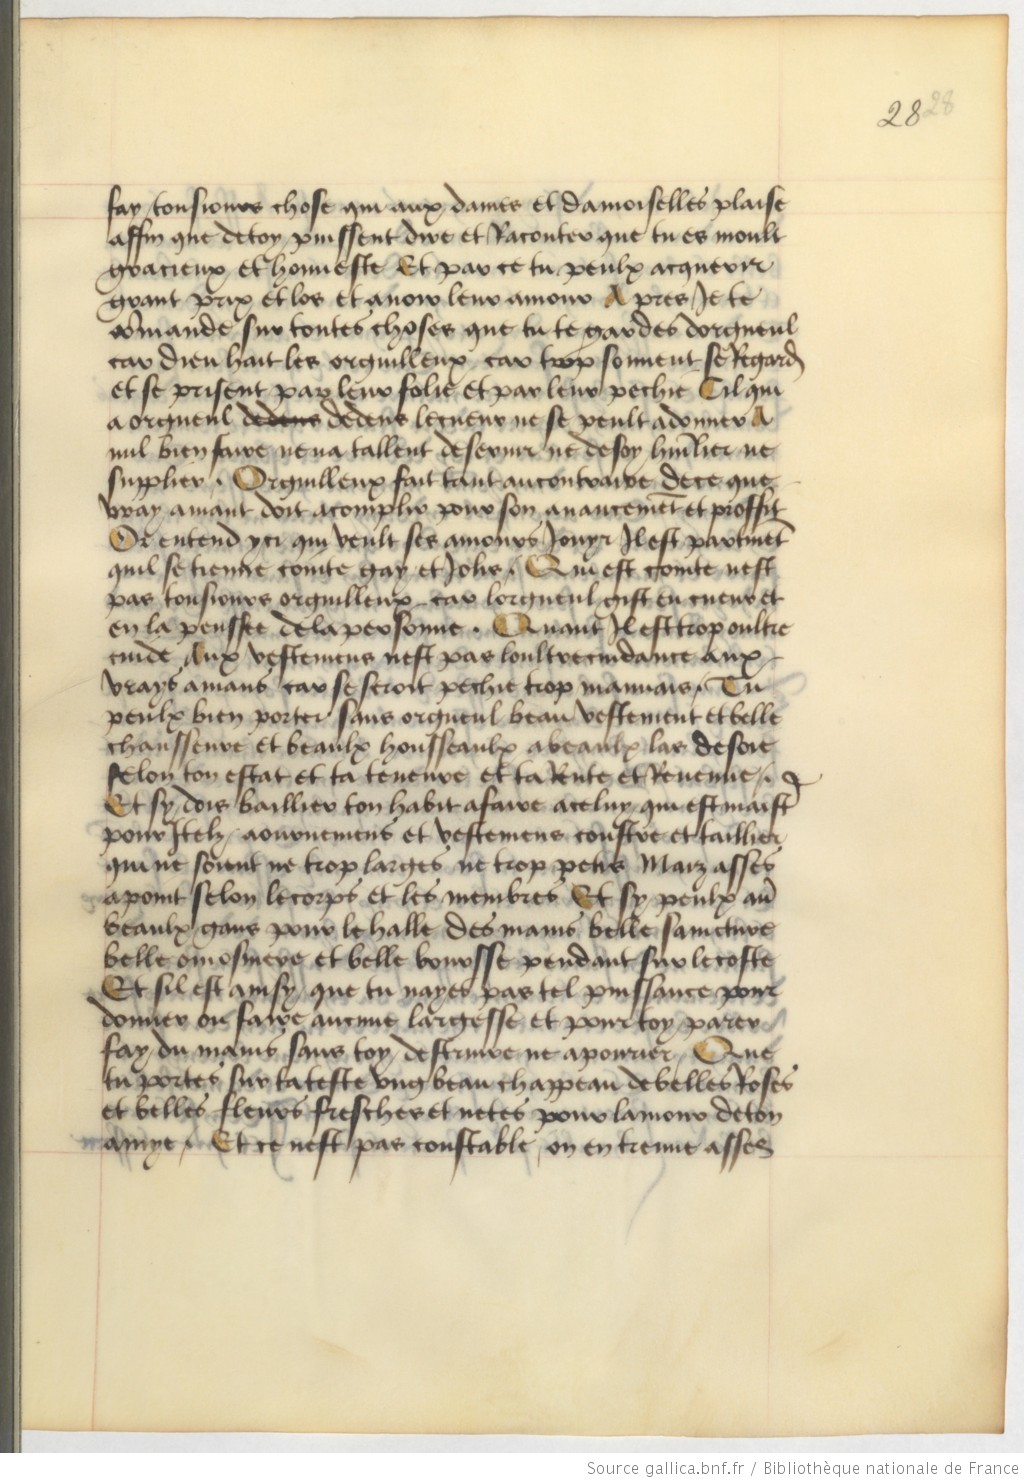 28 28
fay tousiours chose qui aux dames et damoiselles plaise
affin que de toy puissent dire et Raconter que tu es moult
gracieux et honneste Et par ce tu peulx acquerir
grant prix et los et auoir leur amour A pres Je te
cõmande sur toutes choses que tu te gardes dorgueul
car dieu hait les orguilleux car trop souuent se Regard
et se prisent par leur folie et par leur pechie Cil qui
a orgueul dedens dedens le cueur ne se peult adonner A
nul bien faire ne na tallent deseruir ne de soy humilier ne
supplier . Orguilleux fait tant au contraire de ce que
vray amant doit acomplir pour son auancemẽt et proffit
Or entend yci qui veult ses amours Jouyr Il est
quil se tienne cointe gay et Jolis . Qui est cointe nest
pas tousiours orguilleux car lorgueul gist en cueur et
en la penssee de la personne . Quant Il est trop oultre
cuide Aux vestemens nest pas loultrecuidance aux
vrays amans car se seroit pechie trop mauuais . Tu
peulx bien porter sans orgueul beau vestement et belle
chausseure et beaulx housseaulx a beaulx las de soie
selon ton estat et ta teneure et ta Rente et Reuenue .
Et sy dois baillier ton habit a faire a celuy qui est maistre
pour Itelz aournemens et vestemens coustre et taillier
qui ne soient ne trop larges ne trop petis Maiz asses
a point selon le corps et les membres Et sy peulx auoir
beaulx gans pour le halle des mains belle saincture
belle omosniere et belle boursse pendant sur le coste
Et sil est ainsy que tu nayes pas tel puissance pour
donner ou faire aucune largesse et pour toy parer
fay du mains sans toy destruire ne apourier Que
tu portes sur ta teste vng beau chappeau de belles Roses
et belles fleurs fresches et netes pour lamour de ton
amye . Et ce nest pas constable on en treuue asses
Source gallica.bnf.fr / Bibliothèque nationale de France